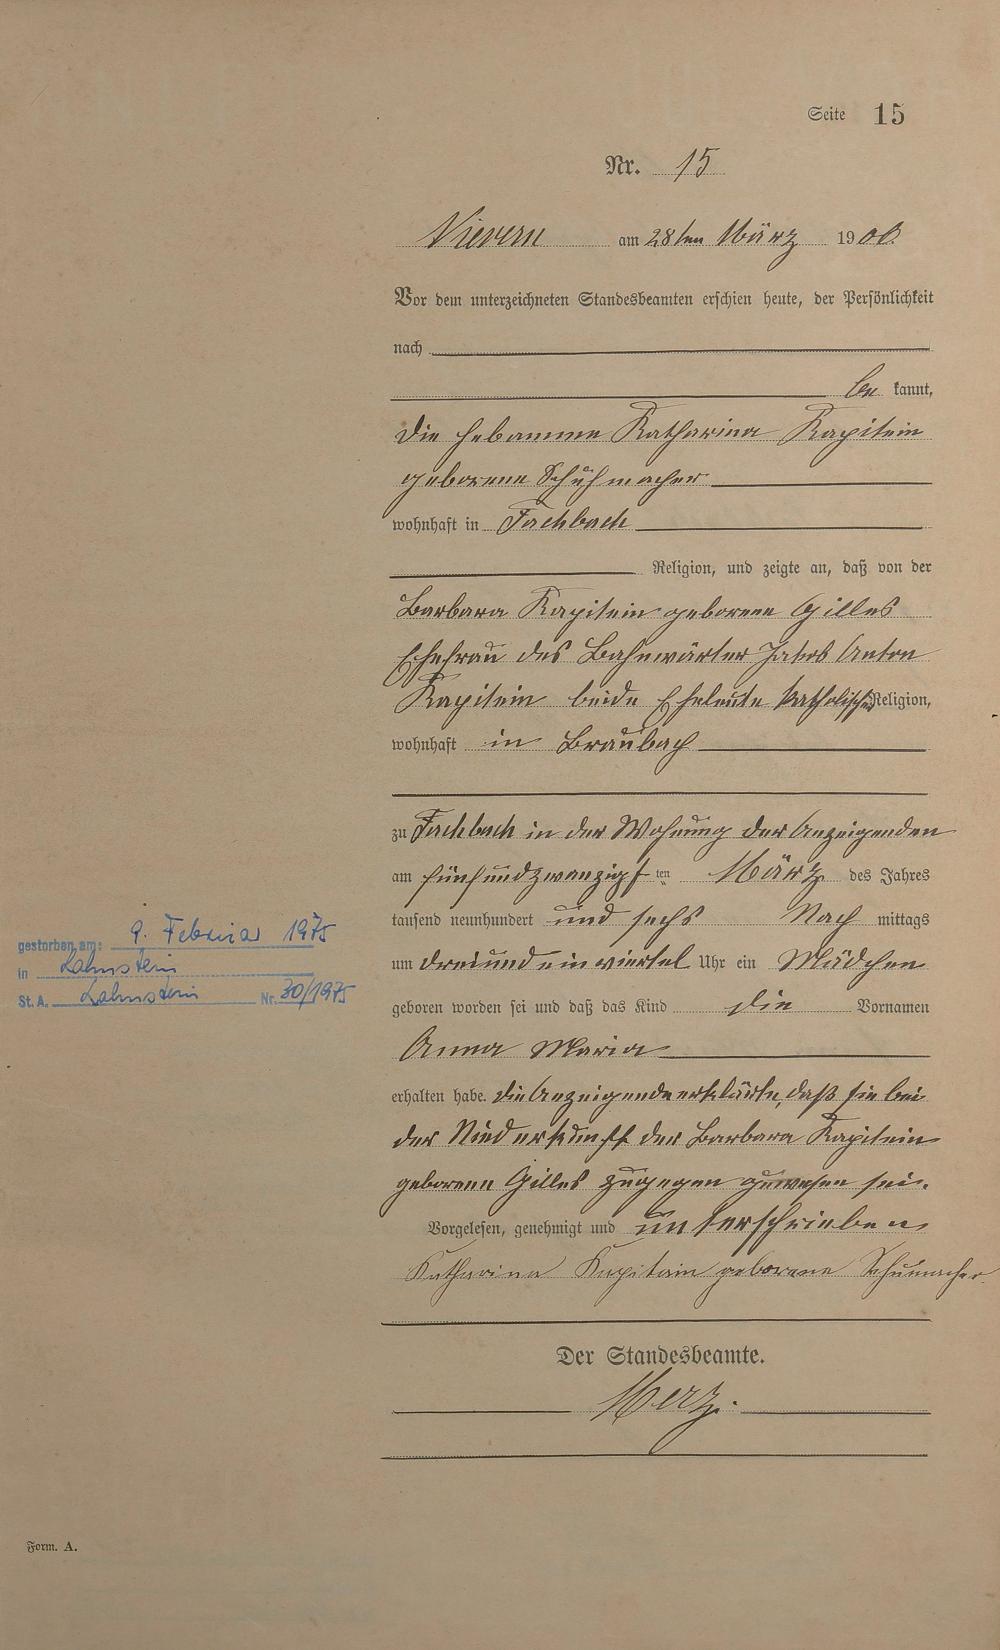 Seite 15
Nr. 15
Nievern am 28ten März 1906
Vor dem unterzeichneten Standesbeamten erschien heute, der Persönlichkeit
nach
be kannt,
die Hebamme Katharina Kapitein
geborene Schuhmacher
wohnhaft in Fachbach
Religion, und zeigte an, daß von der
Barbara Kapitein geborene Gilles
Ehefrau des Bahnwärter Jakob Anton
Kapitein beide Eheleute katholischer Religion,
wohnhaft in Braubach
zu Fachbach in der Wohnung der Anzeigenden
am fünfundzwanzigsten März des Jahres
tausend neunhundert und sechs Nach mittags
um drei und ein viertel Uhr ein Mädchen
geboren worden sei und daß das Kind die Vornamen
Anna Maria
erhalten habe. die Anzeigende erklärte, daß sie bei
der Niederkunft der Barbara Kapitein
geborene Gilles zugegen gewesen sei.
Vorgelesen, genehmigt und unterschrieben
Katharina Kapitain geborene Schumacher
Der Standesbeamte.
Merz.
gestorben am: 9. Februar 1975
in Lahnstein
St. A. Lahnstein Nr. 30/1975
Form. A.